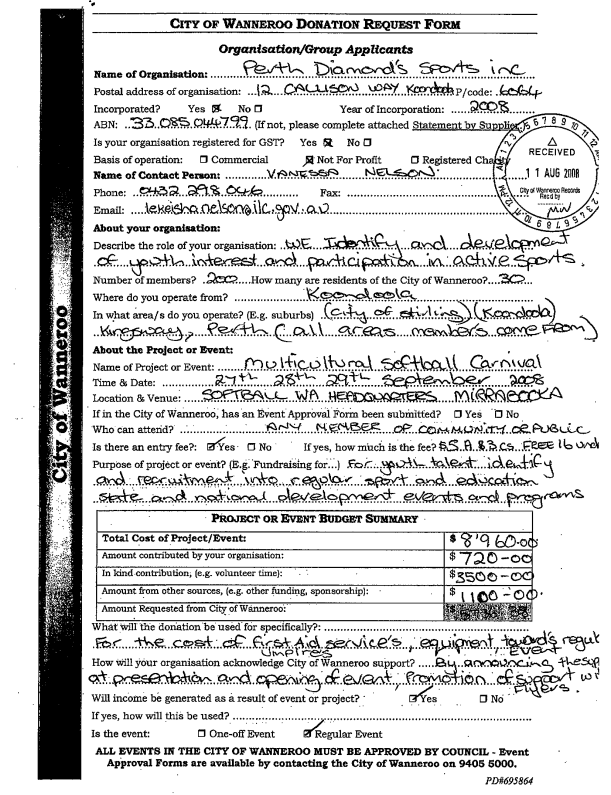 CITY OF WANNEROO DONATION REQUEST FORM
Organisation/Group Applicants
Name of Organisation: Perth Diamond's Sports inc
Postal address of organisation: 12 CALLISON WAY Koondoola P/code: 6064
Incorporated? Yes ☒ No ☐ Year of Incorporation: 2008
ABN: 33 085 044 799 (If not, please complete attached Statement by Supplier
Is your organisation registered for GST? Yes ☒ No ☐
Basis of operation: ☐ Commercial ☒ Not For Profit ☐ Registered Charity
Name of Contact Person: VANESSA NELSON
Phone: 0432 298 046 Fax:
Email: lekeisha.nelson@ilc.gov.au
RECEIVED
11 AUG 2008
City of Wanneroo Records
Rec'd by
MW
About your organisation:
Describe the role of your organisation: WE Identify and development
of youth interest and participation in active sports.
Number of members? 200 How many are residents of the City of Wanneroo? 30
Where do you operate from? Koondoola
In what area/s do you operate? (E.g. suburbs) (City of Stirling) (Koondoola)
Kingsway, Perth (all areas members come From)
About the Project or Event:
Name of Project or Event: Multicultural Softball Carnival
Time & Date: 27th 28th 29th September 2008
Location & Venue: SOFTBALL WA HEADQUARTERS MIRRABOOKA
If in the City of Wanneroo, has an Event Approval Form been submitted? ☐ Yes ☐ No
Who can attend? ANY MEMBER OF COMMUNITY OR PUBLIC
Is there an entry fee?: ☑ Yes ☐ No If yes, how much is the fee? $5. A. $3 cs. FREE 16 und
Purpose of project or event? (E.g. Fundraising for...) For youth talent identify
and recruitment into regular sport and education
state and national development events and programs
PROJECT OR EVENT BUDGET SUMMARY
Total Cost of Project/Event: $ 8'960.00
Amount contributed by your organisation: $ 720-00
In kind contribution, (e.g. volunteer time): $3500-00
Amount from other sources, (e.g. other funding, sponsorship): $ 1100-00.
Amount Requested from City of Wanneroo:
What will the donation be used for specifically?:
For the cost of first Aid service's, equipment towards regul
Umpires Event
How will your organisation acknowledge City of Wanneroo support? By announcing the sup
at presentation and opening of event, Promotion of support wi
Flyers.
Will income be generated as a result of event or project? ☑ Yes ☐ No
If yes, how will this be used?
Is the event: ☐ One-off Event ☑ Regular Event
ALL EVENTS IN THE CITY OF WANNEROO MUST BE APPROVED BY COUNCIL - Event
Approval Forms are available by contacting the City of Wanneroo on 9405 5000.
PD#695864
City of Wanneroo